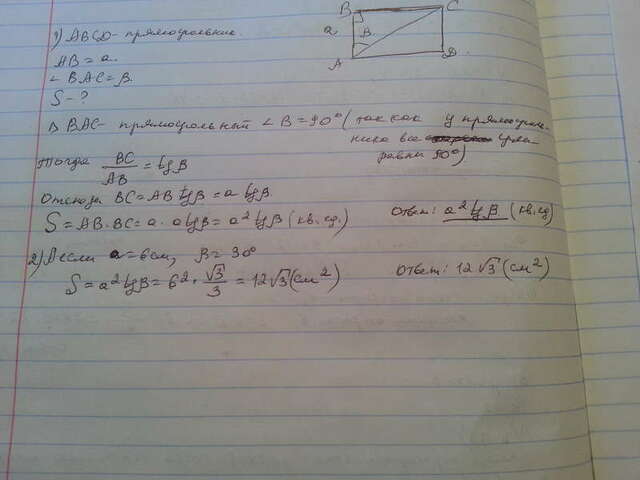 B C
1) ABCD - прямоугольник.
a β
AB = a.
A D
∠ BAC = β.
S - ?
Δ BAC - прямоугольный ∠ B = 90° (так как у прямоуголь-
ника все углы
равны 90°)
Тогда BC/AB = tg β
Отсюда BC = AB tg β = a tg β.
S = AB · BC = a · a tg β = a² tg β (кв. ед.) Ответ: a² tg β (кв. ед)
2) Если a = 6 см, β = 30°
S = a² tg β = 6² · √3/3 = 12√3 (см²) Ответ: 12√3 (см²)